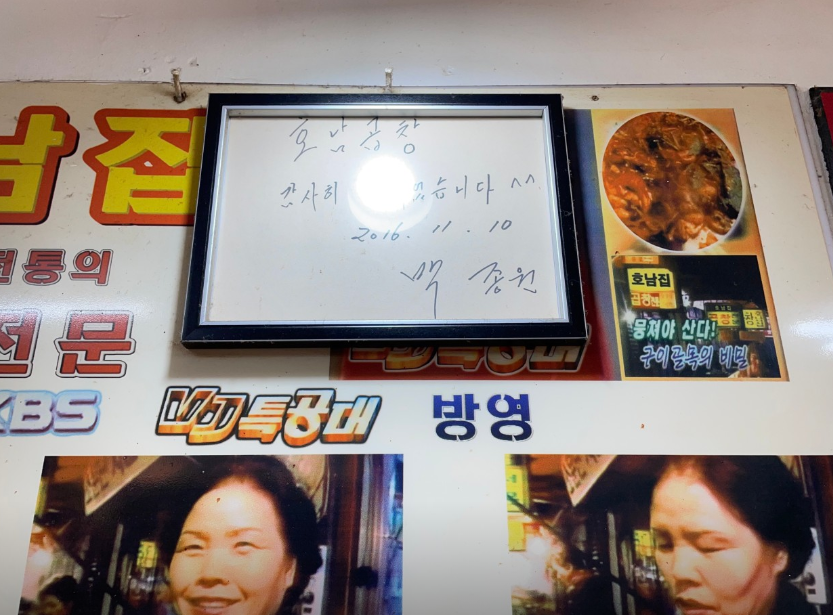 남집
호남곱창
감사히 습니다 ^^
2016. 11. 10
백종원
전통의
전문
KBS VJ특공대 방영
VJ특공대
호남집
호남집
뭉쳐야 산다!
구이골목의 비밀